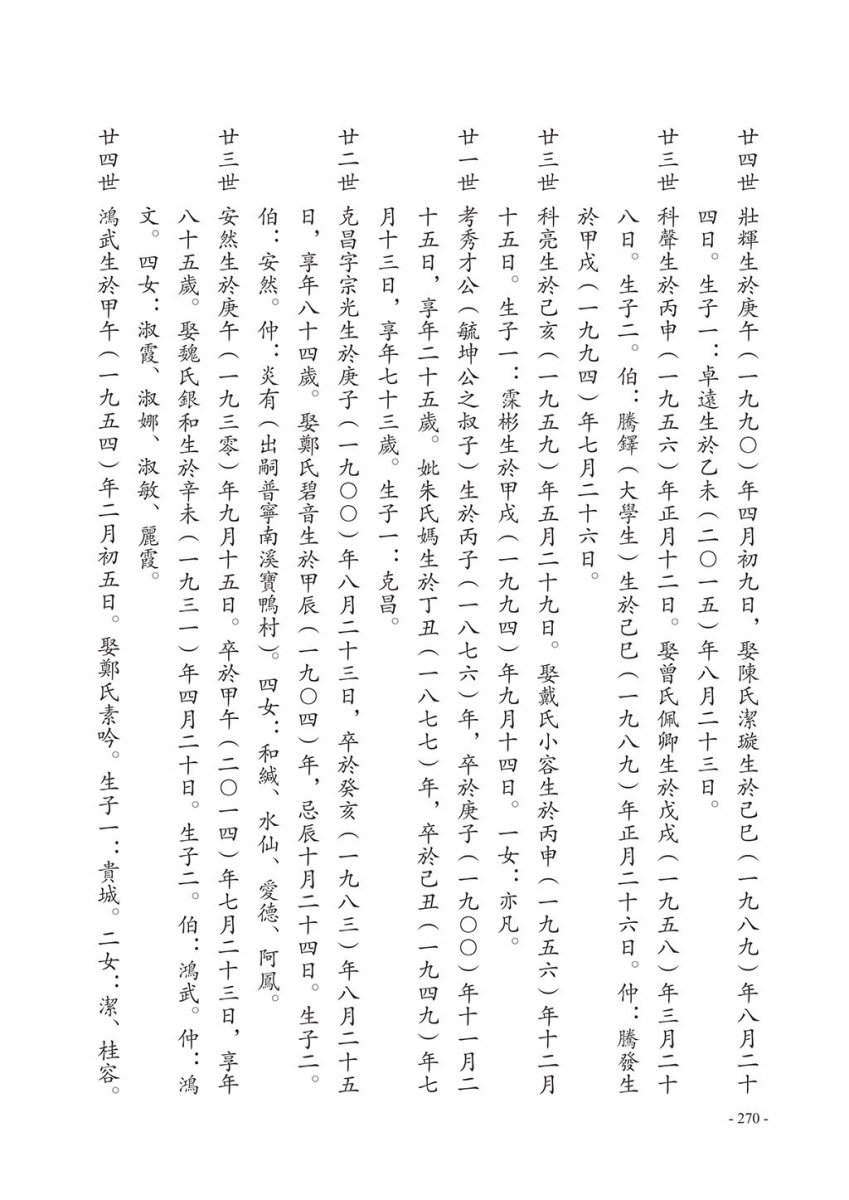 廿四世 壯輝生於庚午(一九九〇)年四月初九日,娶陳氏潔璇生於己巳(一九八九)年八月二十
四日。生子一:卓遠生於乙未(二〇一五)年八月二十三日。
廿三世 科聲生於丙申(一九五六)年正月十二日。娶曾氏佩卿生於戊戌(一九五八)年三月二十
八日。生子二。伯:騰鐸(大學生)生於己巳(一九八九)年正月二十六日。仲:騰發生
於甲戌(一九九四)年七月二十六日。
廿三世 科亮生於己亥(一九五九)年五月二十九日。娶戴氏小容生於丙申(一九五六)年十二月
十五日。生子一:霂彬生於甲戌(一九九四)年九月十四日。一女:亦凡。
廿一世 考秀才公(毓坤公之叔子)生於丙子(一八七六)年,卒於庚子(一九〇〇)年十一月二
十五日,享年二十五歲。妣朱氏媽生於丁丑(一八七七)年,卒於己丑(一九四九)年七
月十三日,享年七十三歲。生子一:克昌。
廿二世 克昌字宗光生於庚子(一九〇〇)年八月二十三日,卒於癸亥(一九八三)年八月二十五
日,享年八十四歲。娶鄭氏碧音生於甲辰(一九〇四)年,忌辰十月二十四日。生子二。
伯:安然。仲:炎有(出嗣普寧南溪寶鴨村)。四女:和緘、水仙、愛德、阿鳳。
廿三世 安然生於庚午(一九三零)年九月十五日。卒於甲午(二〇一四)年七月二十三日,享年
八十五歲。娶魏氏銀和生於辛未(一九三一)年四月二十日。生子二。伯:鴻武。仲:鴻
文。四女:淑霞、淑娜、淑敏、麗霞。
廿四世 鴻武生於甲午(一九五四)年二月初五日。娶鄭氏素吟。生子一:貴城。二女:潔、桂容。
- 270 -